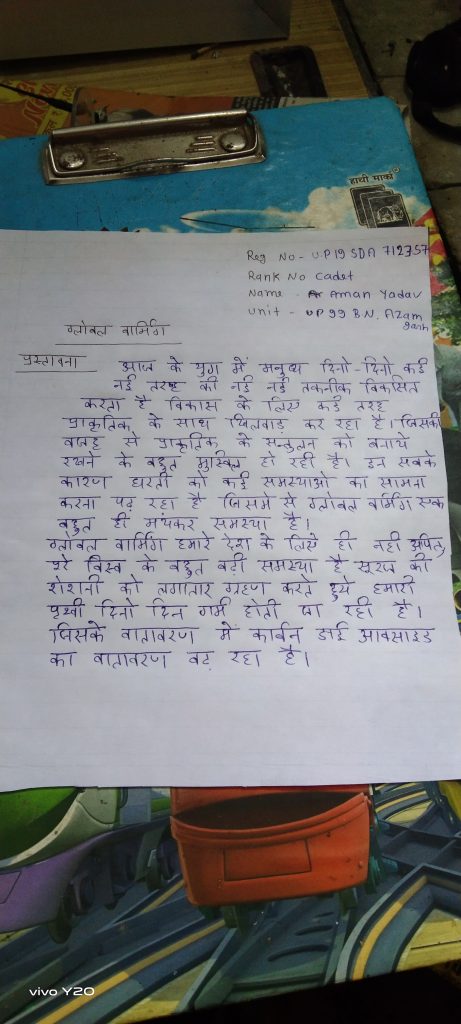 हाथी मार्का
Reg No - UP19 SDA 712757
Rank No Cadet
Name - Aman Yadav
Unit - UP 99 B.N. Azam
garh
ग्लोबल वार्मिंग
प्रस्तावना आज के युग में मनुष्य दिनो-दिनो कई
नई तरह की नई नई तकनीक विकसित
करता है विकास के लिए कई तरह
प्राकृतिक के साथ खिलवाड़ कर रहा है। जिसकी
वजह से प्राकृतिक के सन्तुलन को बनाये
रखने के बहुत मुस्किल हो रही है। इन सबके
कारण धरती को कई समस्याओ का सामना
करना पढ़ रहा है जिसमे से ग्लोबल वार्मिंग एक
बहुत ही भंयकर समस्या है।
ग्लोबल वार्मिंग हमारे देश के लिए ही नही अपितु
पुरे विस्व के बहुत बड़ी समस्या है सूरज की
रोशनी को लगातार ग्रहण करते हुये हमारी
पृथ्वी दिनो दिन गर्म होती जा रही है।
जिसके वातावरण में कार्बन डाई आक्साइड
का वातावरण बढ़ रहा है।
vivo Y20